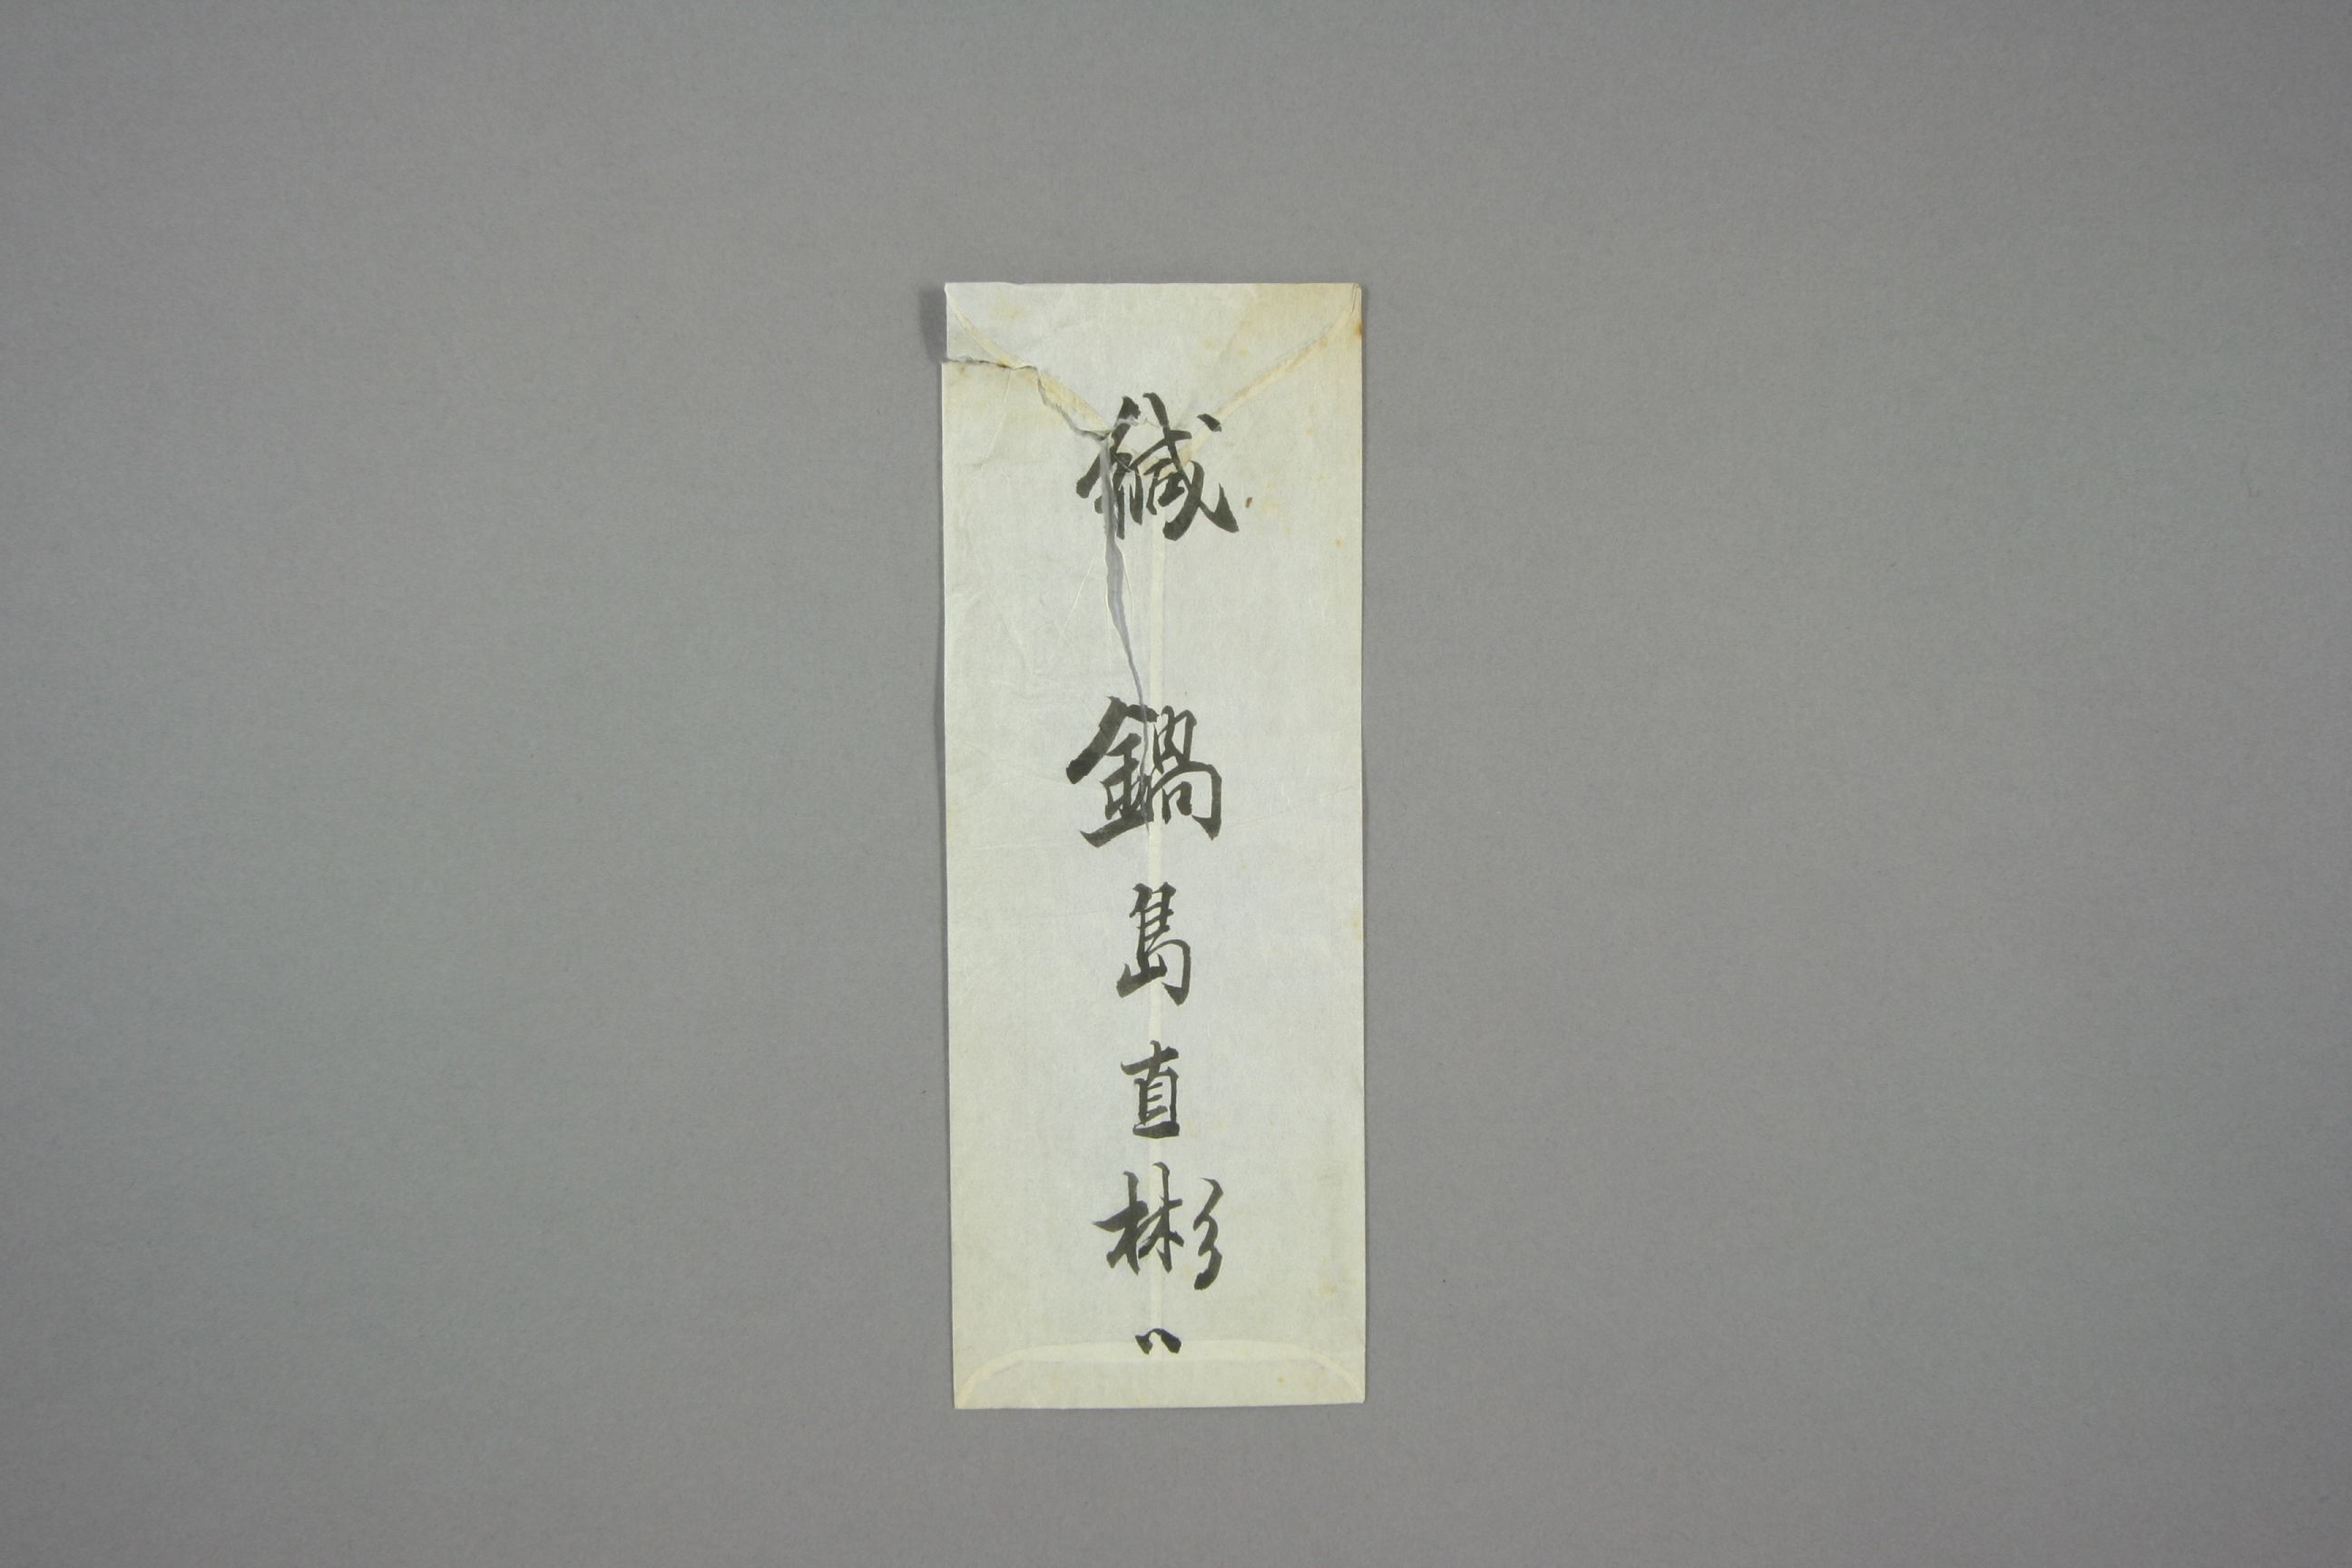 緘 鍋島直彬